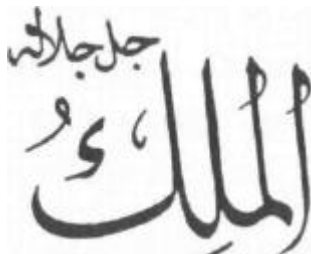 جل جلاله
الملك